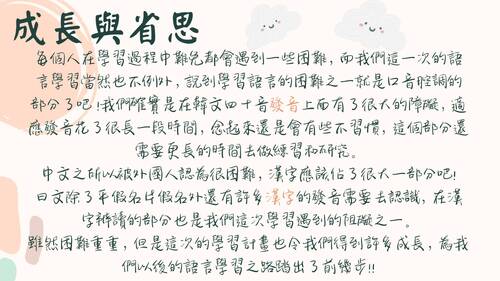 成長與省思
每個人在學習過程中難免都會遇到一些困難，而我們這一次的語
言學習當然也不例外，說到學習語言的困難之一就是口音腔調的
部分了吧!我們確實是在韓文四十音發音上面有了很大的障礙，適
應發音花了很長一段時間，念起來還是會有些不習慣，這個部分還
需要更長的時間去做練習和研究。
中文之所以被外國人認為很困難，漢字應該佔了很大一部分吧!
日文除了平假名片假名外還有許多漢字的發音需要去認識，在漢
字辨讀的部分也是我們這次學習遇到的阻礙之一。
雖然困難重重，但是這次的學習計畫也令我們得到許多成長，為我
們以後的語言學習之路踏出了前幾步!!